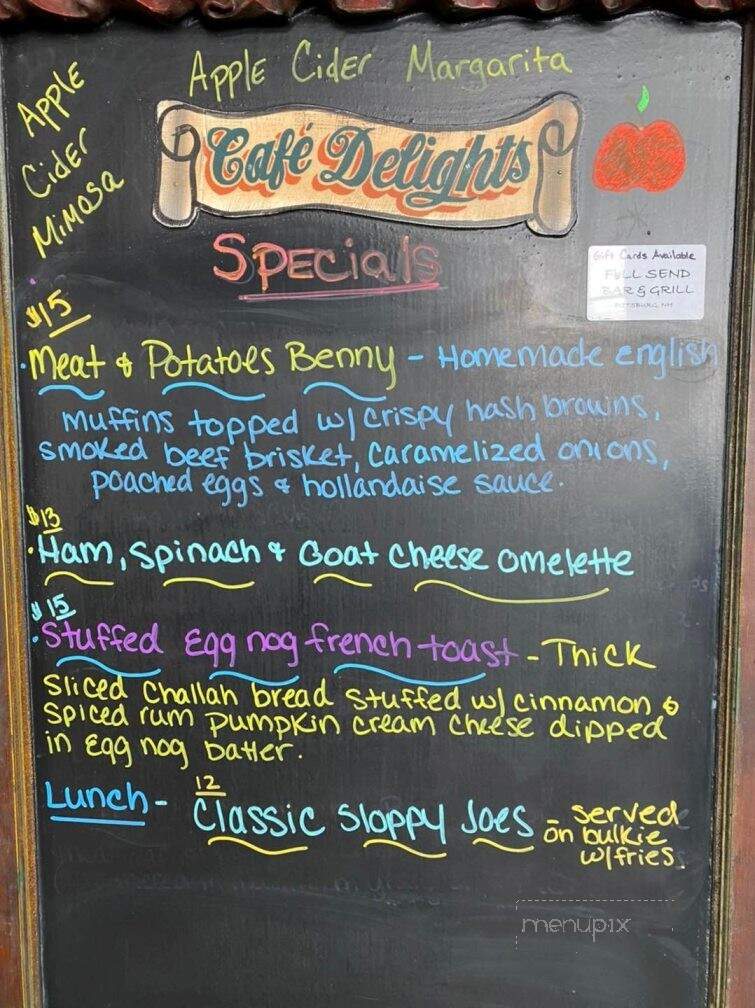 Apple Cider Margarita
Apple
Cider
Mimosa
Café Delights
Specials
Gift Cards Available
FULL SEND
BAR & GRILL
PITTSBURG, NH
$15
• Meat & Potatoes Benny - Homemade english
muffins topped w/ crispy hash browns,
smoked beef brisket, caramelized onions,
poached eggs & hollandaise sauce.
$13
• Ham, Spinach & Goat cheese omelette
$15
• Stuffed Egg nog french toast - Thick
sliced challah bread stuffed w/ cinnamon &
spiced rum pumpkin cream cheese dipped
in Egg nog batter.
12
Lunch - Classic Sloppy Joes - served
on bulkie
w/ fries.
menupix